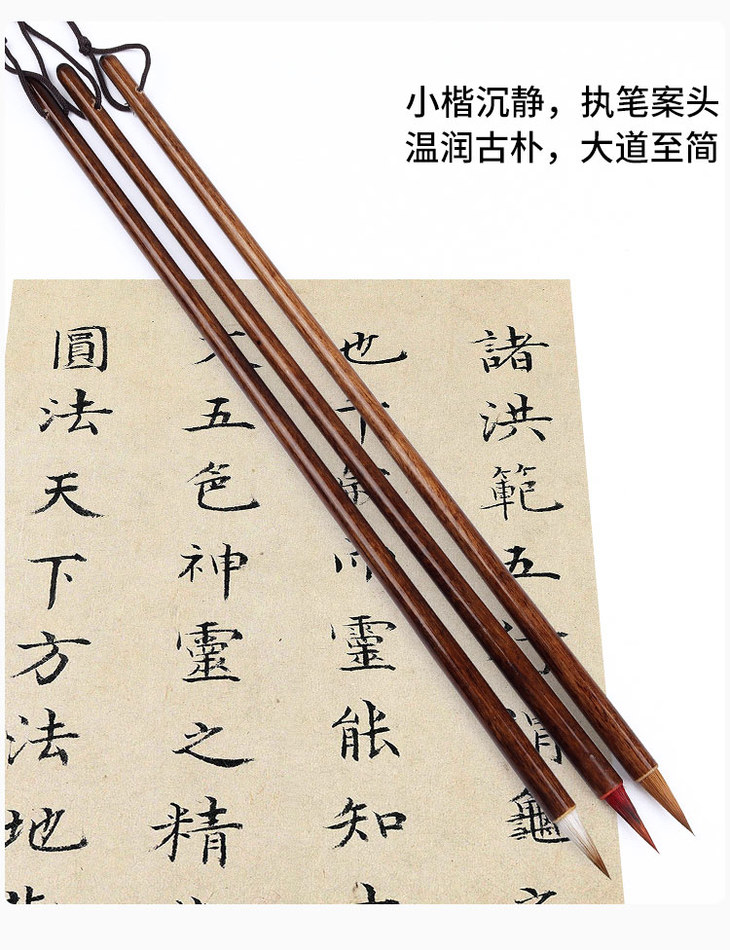 小楷沉静，执笔案头
温润古朴，大道至简
諸洪範五行謂龜
也十靈能知
五色神靈之精
圓法天下方法地